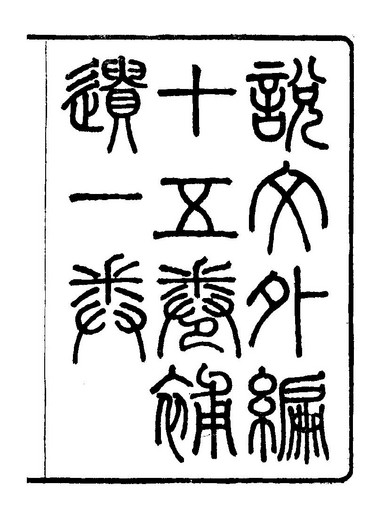 說文外編
十五卷補
遺一卷